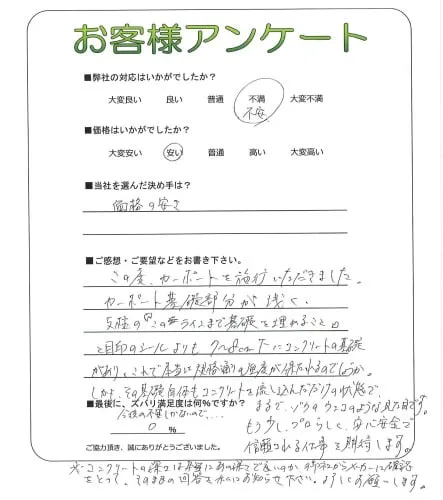 お客様アンケート
■弊社の対応はいかがでしたか？
大変良い 良い 普通 不満 大変不満
不安
■価格はいかがでしたか？
大変安い 安い 普通 高い 大変高い
■当社を選んだ決め手は？
価格の安さ
■ご感想・ご要望などをお書き下さい。
この度、カーポートを施行いただきました。
カーポート基礎部分が浅く、
支柱の"このラインまで基礎を埋めること"
と目印のシールよりも 7〜8cm下にコンクリートの基礎
があり、これで本当に規格通りの強度が保たれるのでしょうか。
しかも、その基礎自体もコンクリートを流し込んだだけの状態で、
■最後に、ズバリ満足度は何％ですか？
まるで、ゾウのウンコのような見た目です。
今後の不安しかないので、、、、
0 ％
もう少しプロらしく、安心安全で
信頼される仕事を期待します。
ご協力頂き、誠にありがとうございました。
※コンクリートの深さは本当にあの深さで良いのか
をとって、その時の回答を私にお知らせ下さい。ようにお願いします。